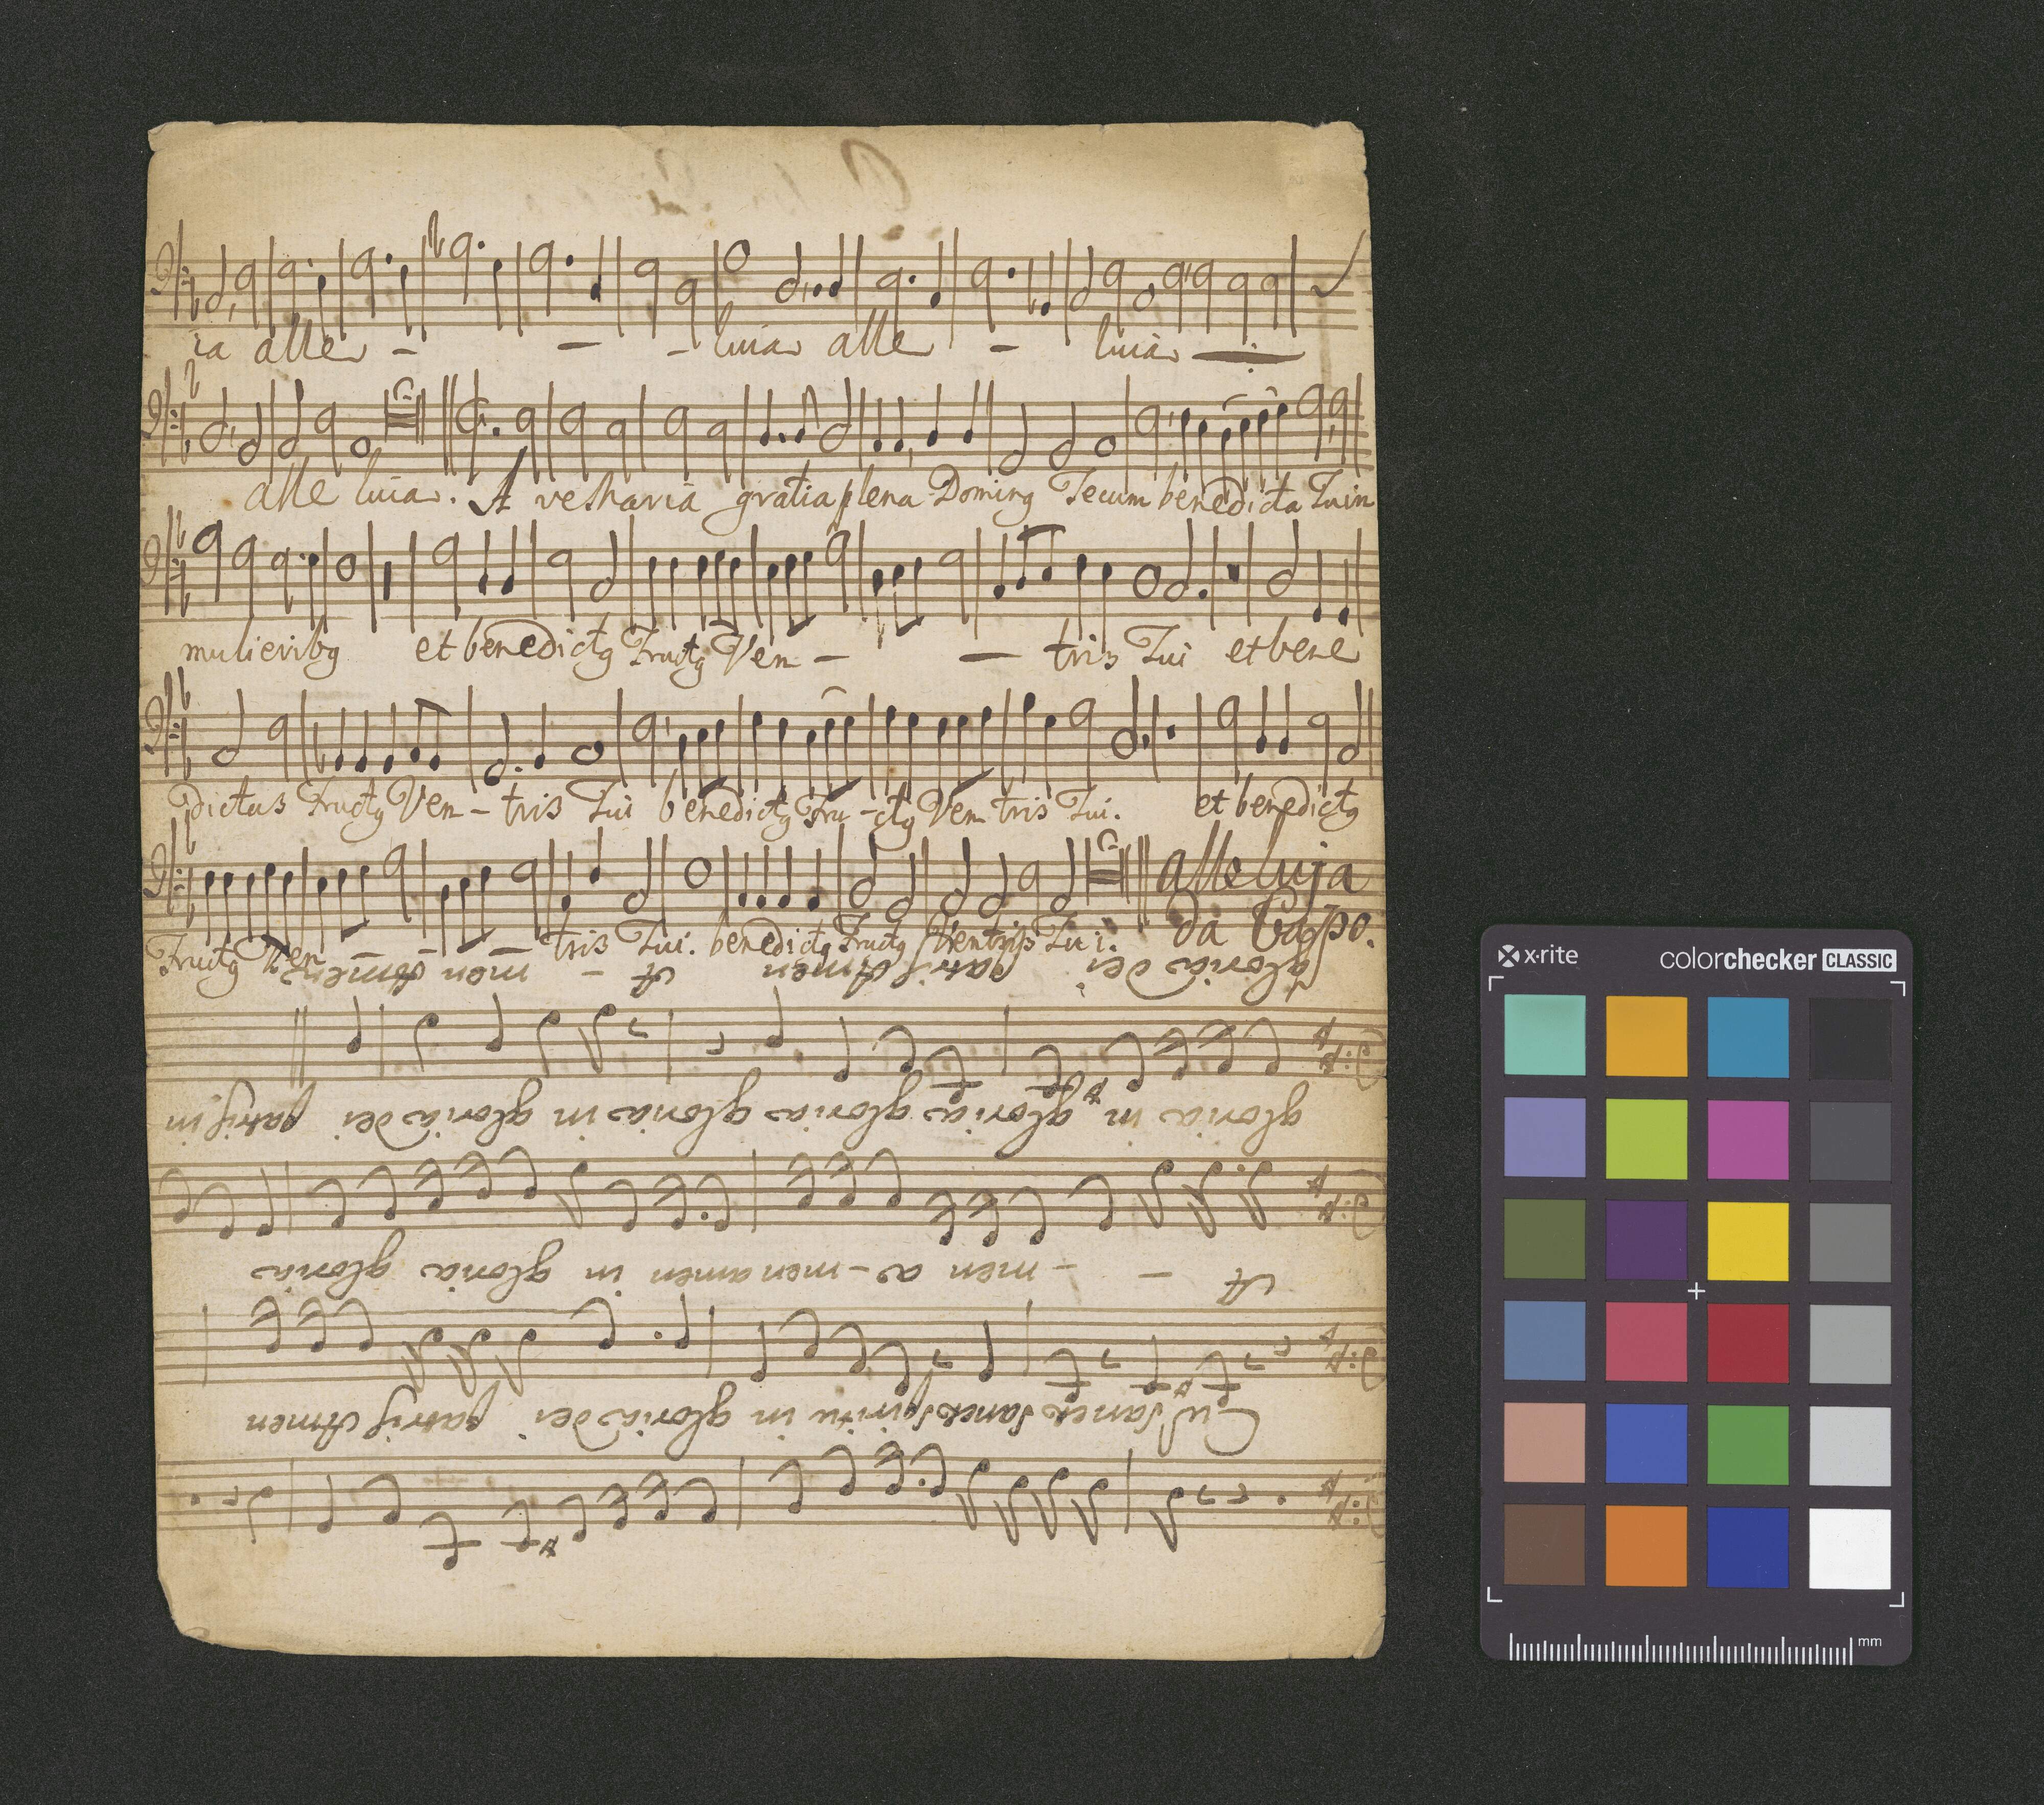 ia alle - - - luia alle - luia
alle luia. Ave Maria gratia plena Doming Tecum benedicta Tu in
mulieribg et benedictg Fructg Ven - - tris Tui et bene
dictus Fructg Ven - tris Tui benedictg Fru - ctg Ven tris Tui. et benedictg
Fructg Ven - - - tris Tui. benedictg Fructg Ventris Tui. alleluja
Da Capo.
Cu Sancto Spiritu in gloria dei patris Amen
A - - men a - men amen in gloria gloria
gloria in gloria gloria gloria in gloria dei patris in
gloria dei patris Amen A - men Amen
x-rite
colorchecker CLASSIC
mm